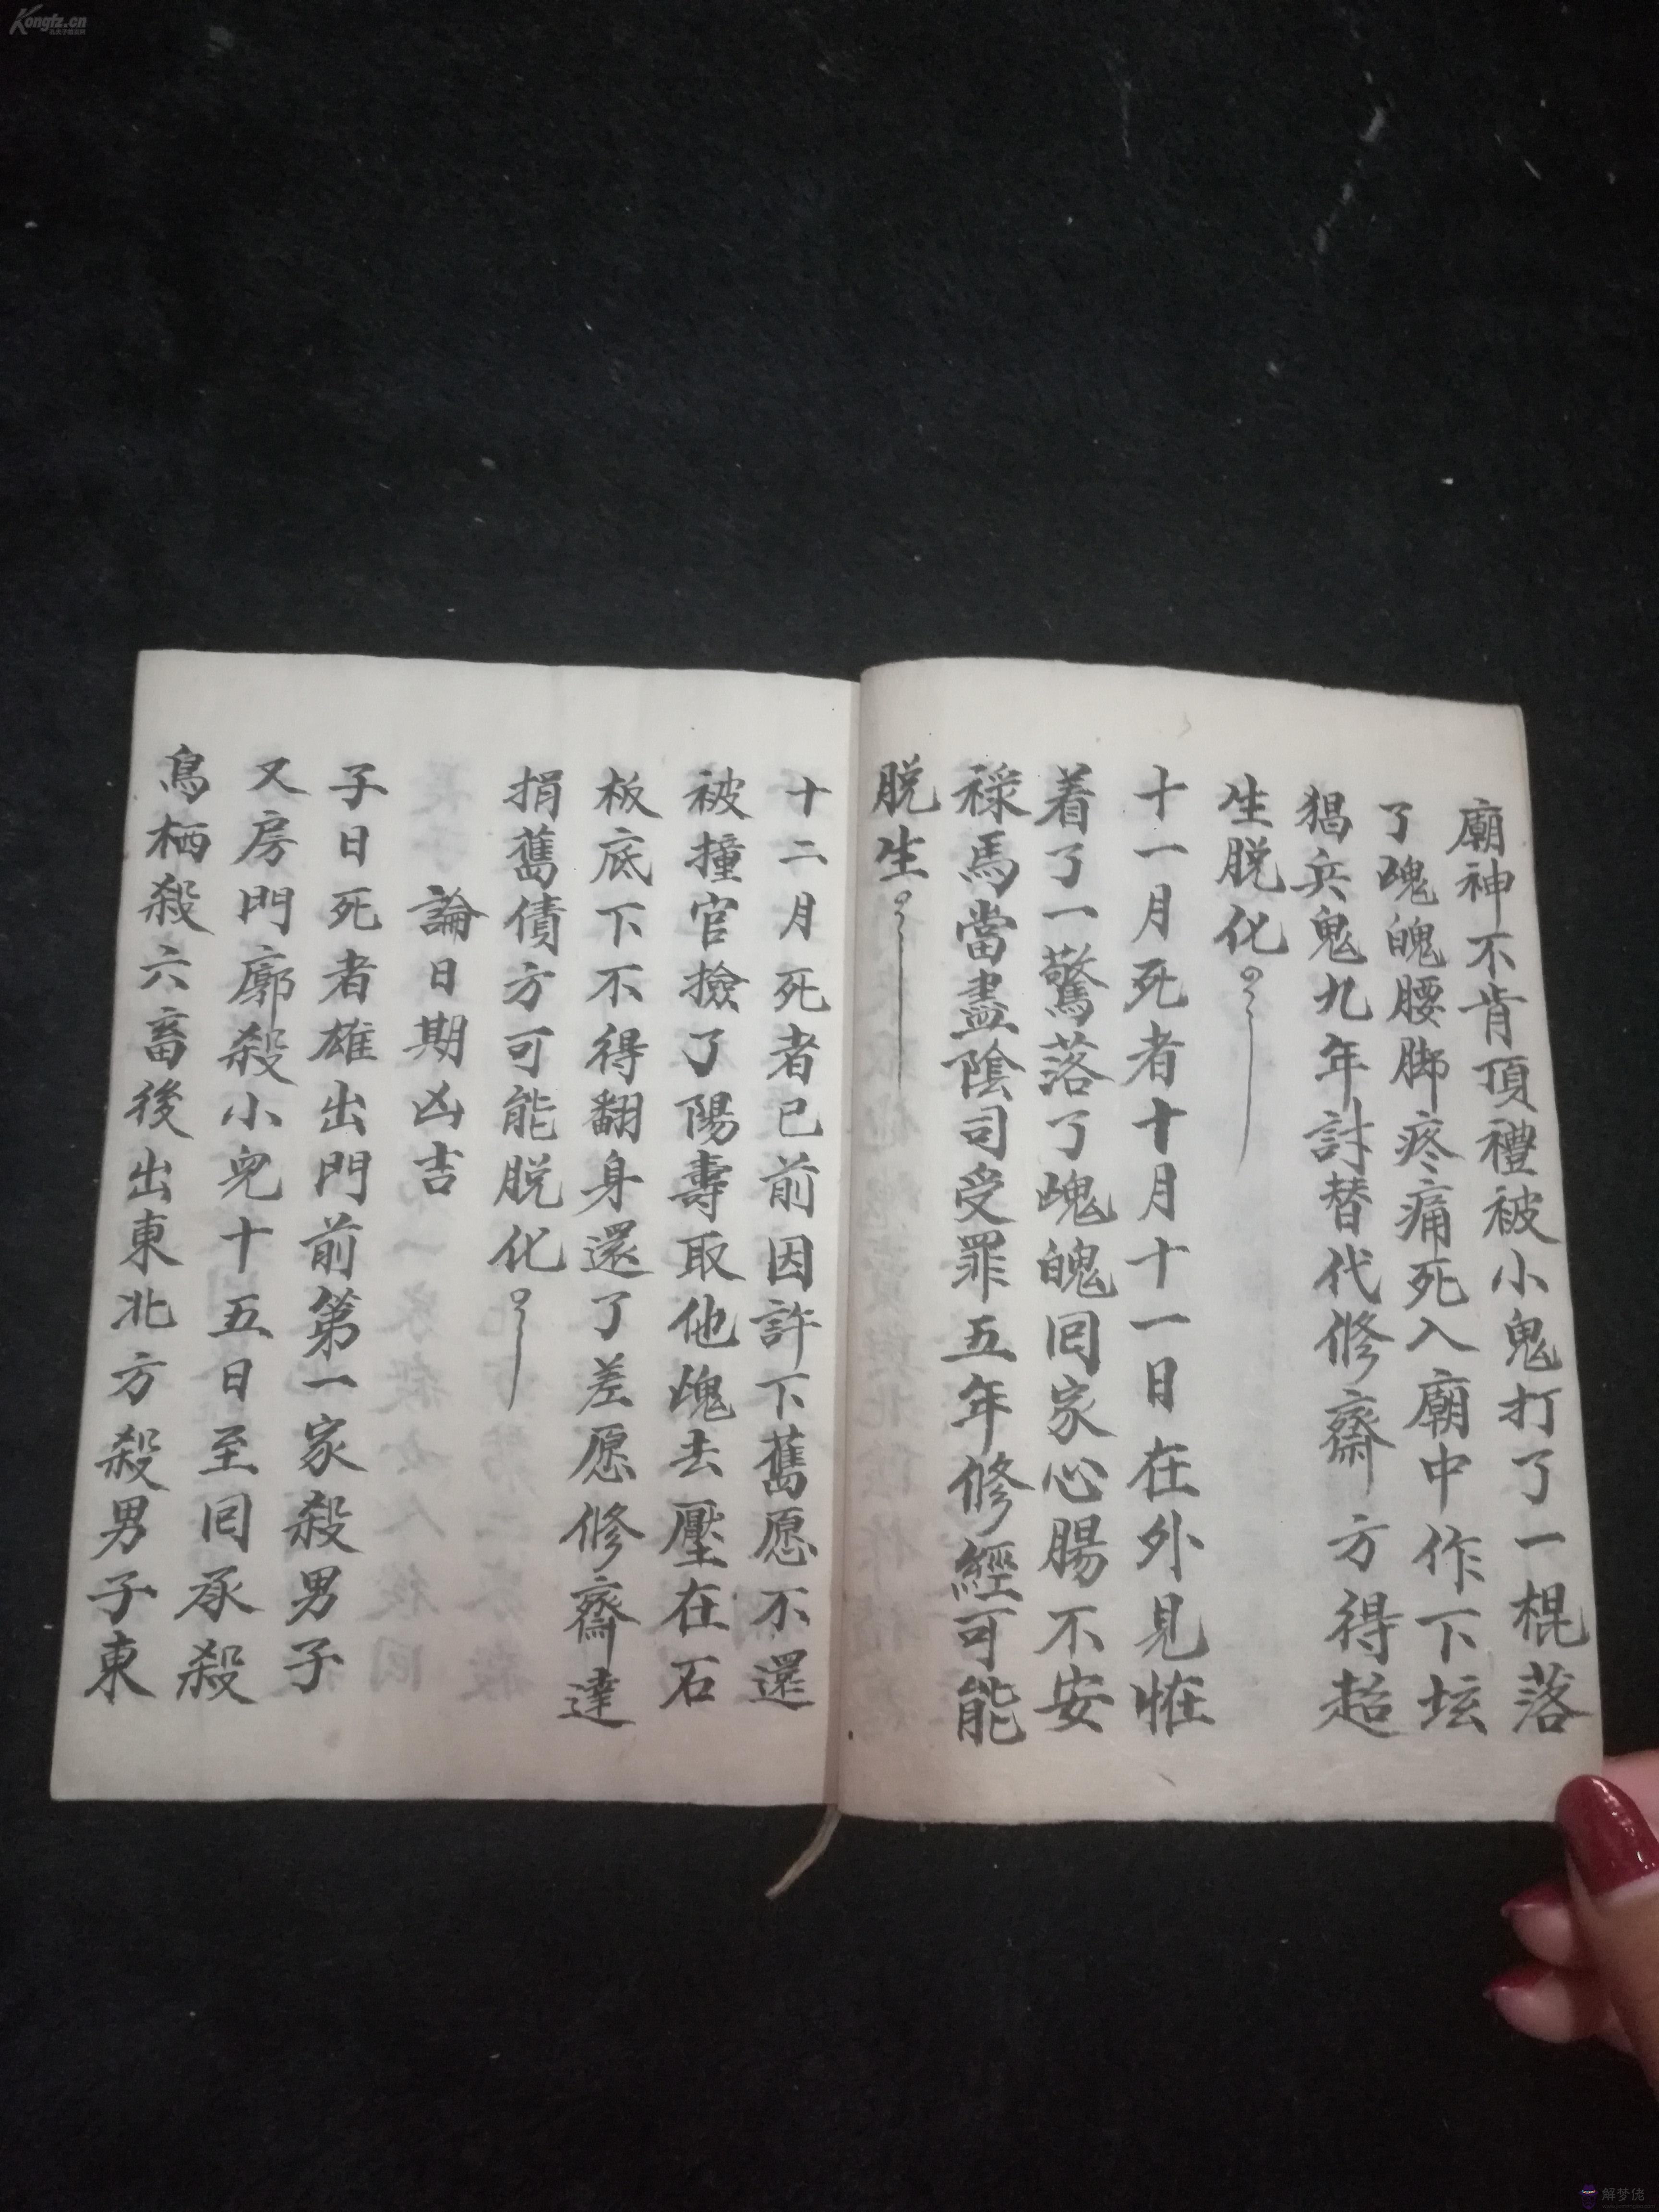 廟神不肯頂禮被小鬼打了一棍落
了魂魄腰脚疼痛死入廟中作下坛
猖兵鬼九年討替代修齋方得超
生脱化
十一月死者十月十一日在外見恠
着了一驚落了魂魄囘家心腸不安
祿馬當盡陰司受罪五年修經可能
脱生
十二月死者已前因許下舊愿不還
被撞官撿了陽壽取他魂去壓在石
板底下不得翻身還了差愿修齋達
捐舊債方可能脱化
論日期凶吉
子日死者雄出門前第一家殺男子
又房門廓殺小兒十五日至囘承殺
鳥栖殺六畜後出東北方殺男子東
Kongfz.cn
解梦佬